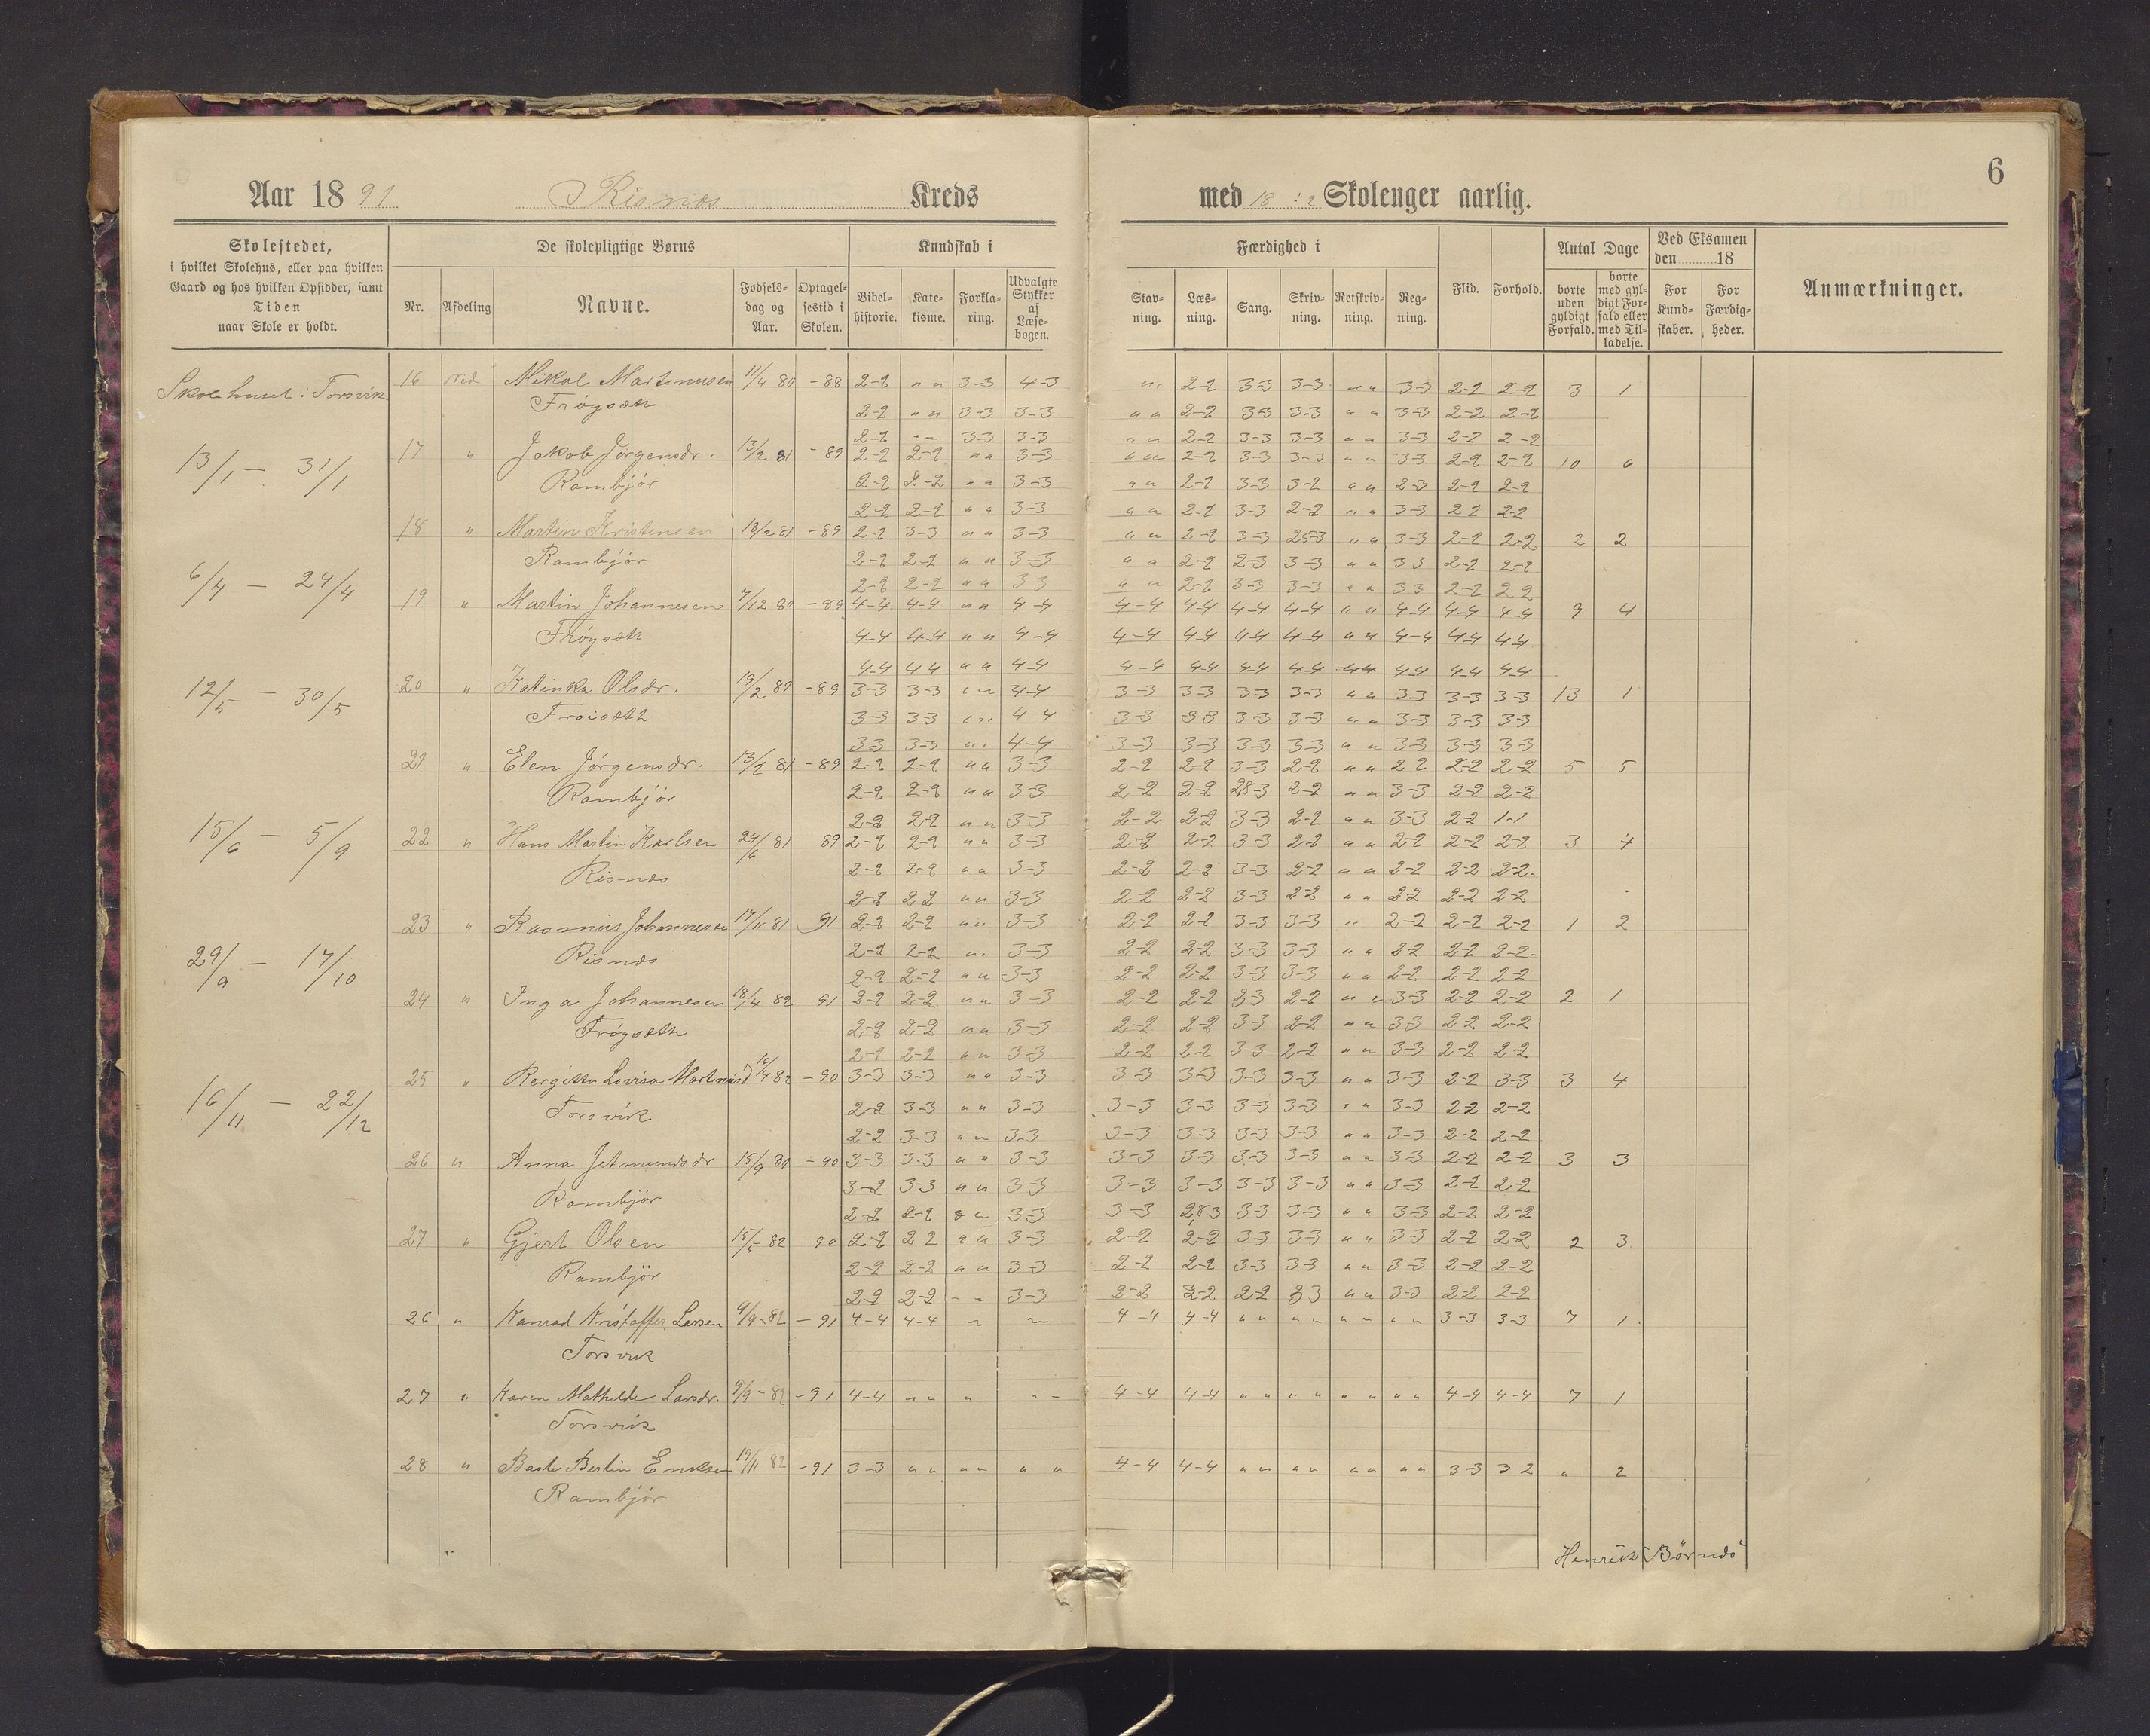 6
Aar 1891 Risnæs Kreds med 18 : 2 Skoleuger aarlig.
Skolestedet, i hvilket Skolehus, eller paa hvilken Gaard og hos hvilken Opsidder, samt Tiden naar Skole er holdt.
De skolepligtige Børns
Nr. Afdeling Navne. Fødselsdag og Aar. Optagelsestid i Skolen.
Kundskab i
Bibelhistorie. Katekisme. Forklaring. Udvalgte Stykker af Læsebogen.
Færdighed i
Stavning. Læsning. Sang. Skrivning. Retskrivning. Regning.
Flid. Forhold.
Antal Dage
borte uden gyldigt Forfald. borte med gyldigt Forfald eller med Tilladelse.
Ved Eksamen den 18
For Kundskaber. For Færdigheder.
Anmærkninger.
Skolehuset : Torsvik
13/1 — 31/1
6/4 — 24/4
12/5 — 30/5
15/6 — 5/9
29/9 — 17/10
16/11 — 22/12
16 Ned Nikol. Martinusen 11/4 80 -88 2-2 " " 3-3 4-3 " " 2-2 3-3 3-3 " " 3-3 2-2 2-2 3 1
Frøysæth 2-2 " " 3-3 3-3 " " 2-2 3-3 3-3 " " 3-3 2-2 2-2
2-2 " " 3-3 3-3 " " 2-2 3-3 3-3 " " 3-3 2-2 2-2
17 " Jakob Jørgensdr. 13/2 81 -89 2-2 2-2 " " 3-3 " " 2-2 3-3 3-3 " " 3-3 2-2 2-2 10 6
Rambjør 2-2 2-2 " " 3-3 " " 2-2 3-3 3-2 " " 2-3 2-2 2-2
2-2 2-2 " " 3-3 " " 2-2 3-3 2-2 " " 3-3 2 2 2-2
18 " Martin Kristensen 18/2 81 -89 2-2 3-3 " " 3-3 " " 2-2 3-3 2,5-3 " " 3-3 2-2 2-2 2 2
Rambjør 2-2 2-2 " " 3-3 " " 2-2 2-3 3-3 " " 3 3 2-2 2-2
2-2 2-2 " " 3 3 " " 2-2 3-3 3-3 " " 3 3 2-2 2 2
19 " Martin Johannesen 7/12 80 -89 4-4 4-4 " " 4-4 4-4 4-4 4-4 4-4 " " 4-4 4-4 4-4 9 4
Frøysæth 4-4 4-4 " " 4-4 4-4 4-4 4-4 4-4 " " 4-4 4-4 4-4
4-4 4 4 " " 4-4 4-4 4-4 4-4 4-4 4-4 4-4 4-4
20 " Katinka Olsdr. -89 3-3 3-3 " " 4-4 3-3 3-3 3-3 3-3 " " 3-3 3-3 3-3 13 1
3-3 3-3 " " 4 4 3-3 3-3 3-3 3-3 " " 3-3 3-3 3-3
3-3 3-3 " " 4-4 3-3 3-3 3-3 3-3 " " 3-3 3-3 3-3
21 " Elen Jørgensdr. 13/2 81 -89 2-2 2-2 " " 3-3 2-2 2-2 3-3 2-2 " " 2 2 2-2 2-2 5 5
Rambjør 2-2 2-2 " " 3-3 2-2 2-2 2,8-3 2-2 " " 3-3 2-2 2-2
2-2 2-2 " " 3-3 2-2 2-2 3-3 2-2 " " 3-3 2-2 1-1
22 " Hans Martin Karlsen 24/6 81 89 2-2 2-2 " " 3-3 2-2 2-2 3-3 2-2 " " 2-2 2-2 2-2 3 4
Risnæs 2-2 2-2 " " 3-3 2-2 2-2 3-3 2-2 " " 2-2 2-2 2-2
2-2 2 2 " " 3-3 2-2 2-2 3-3 2-2 " " 2-2 2-2 2-2
23 " Rasmus Johannesen 17/11 81 91 2-2 2-2 " " 3-3 2-2 2-2 3-3 3-3 " " 2-2 2-2 2-2 1 2
Risnæs 2-2 2-2 " " 3-3 2-2 2-2 3-3 3-3 " " 2-2 2-2 2-2
2-2 2-2 " " 3-3 2-2 2-2 3-3 3-3 " " 2-2 2-2 2-2
24 " Inga Johannesen 18/4 82 91 2-2 2-2 " " 3-3 2-2 2-2 3-3 2-2 " " 3-3 2-2 2-2 2 1
Frøysæth 2-2 2-2 " " 3-3 2-2 2-2 3-3 2-2 " " 3-3 2-2 2-2
2-2 2-2 " " 3-3 2-2 2-2 3-3 2-2 " " 3-3 2-2 2-2
25 " Bergitta Lovisa Martinusd 82 -90 3-3 3-3 " " 3-3 3-3 3-3 3-3 3-3 " " 3-3 2-2 3-3 3 4
Torsvik 2-2 3-3 " " 3-3 3-3 3-3 3-3 3-3 " " 3-3 2-2 2-2
2-2 3-3 " " 3-3 3-3 3-3 3-3 3-3 " " 3-3 2-2 2-2
26 " Anna Jetmundsdr 15/9 81 -90 3-3 3-3 " " 3-3 3-3 3-3 3-3 3-3 " " 3-3 2-2 2-2 3 3
Rambjør 3-2 3-3 " " 3-3 3-3 3-3 3-3 3-3 " " 3-3 2-2 2-2
2-2 2-2 3-3 3-3 2,8 3 3-3 3-3 " " 3-3 2-2 2-2
27 " Gjert Olsen 15/5 82 90 2-2 2 2 " " 3-3 2-2 2-2 3-3 3-3 " " 3-3 2-2 2-2 2 3
Rambjør 2-2 2-2 " " 3-3 2-2 2-2 3-3 3-3 " " 3-3 2-2 2-2
2-2 2-2 - - 3-3 2-2 2-2 2-2 3 3 " " 3-3 2-2 2-2
26 " Konrad Kristoffer Larsen 9/9-82 -91 4-4 4-4 " " 4-4 4-4 " " " " " " " " 3-3 3-3 7 1
Torsvik
27 " Karen Mathilde Larsdr. 9/9-82 -91 4-4 " " " " " 4-4 4-4 " " " " " " " " 4-4 4-4 7 1
Torsvik
28 " Baste Bertin Eriksen 19/11 82 -91 3-3 " " " " " " 4-4 4-4 " " " " " " " " 3-3 3 2 " 2
Rambjør
Henrik Børnes